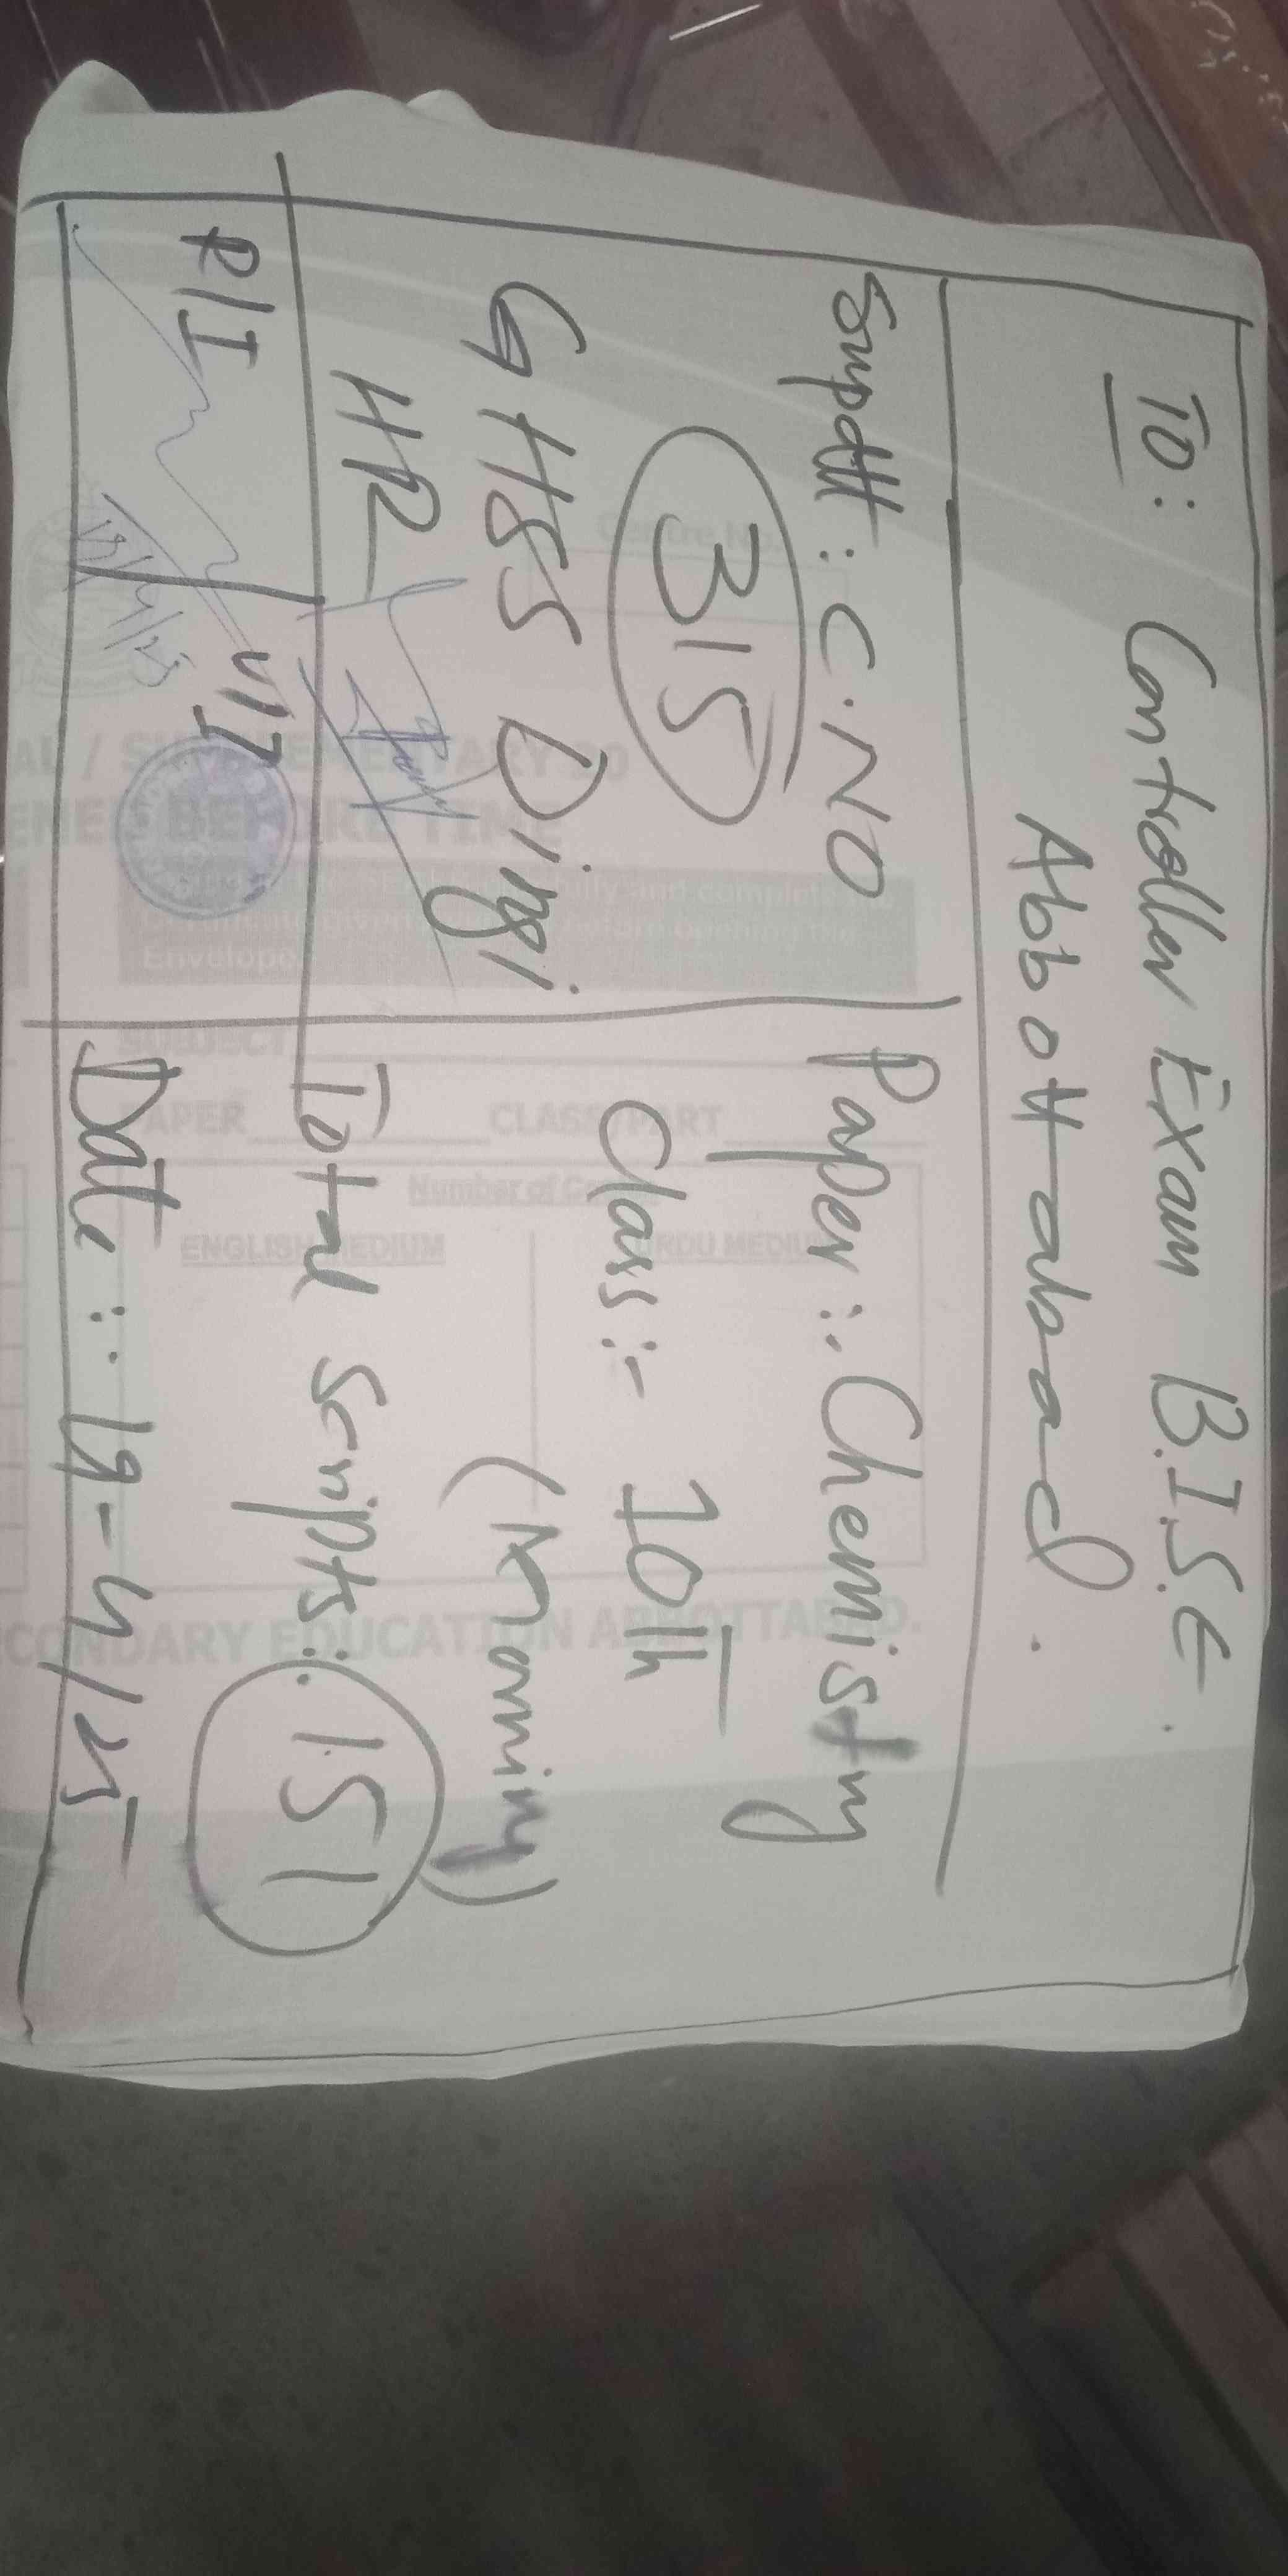 TO: Controller Exam B.I.S.E.
Abbottabad.
Supdtt: C.NO
315
GHSS Dingi
HR
R/I
Paper:. Chemistry
Class:- 10th
(Morning)
Total Scripts:. 151
Date:. 19-4/25
Centre No.
AL / SUPPLEMENTARY 20
BEFORE TIME
and complete
before opening the
Envelope
SUBJECT
PAPER CLASS/PART
Number of
ENGLISH MEDIUM URDU MEDIUM
ECONDARY EDUCATION ABBOTTABAD.